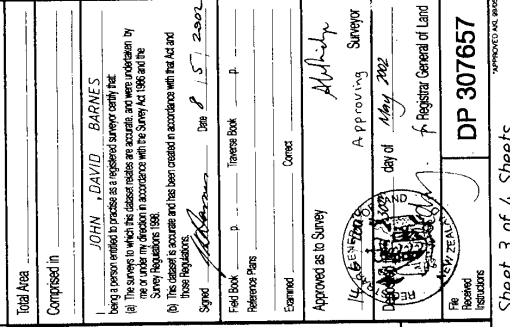 Total Area
Comprised in
I JOHN DAVID BARNES
being a person entitled to practise as a registered surveyor certify that:
(a) The surveys to which this dataset relates are accurate, and were undertaken by
me or under my direction in accordance with the Survey Act 1986 and the
Survey Regulations 1998.
(b) This dataset is accurate and has been created in accordance with that Act and
those Regulations.
Signed Date 8 / 5 / 2002
Field Book p. Traverse Book p.
Reference Plans
Examined Correct
Approved as to Survey
Approving Surveyor
day of May 2002
for Registrar General of Land
REGISTRAR-GENERAL OF LAND
NEW ZEALAND
File
Received
Instructions
DP 307657
Sheet 3 of 4 Sheets